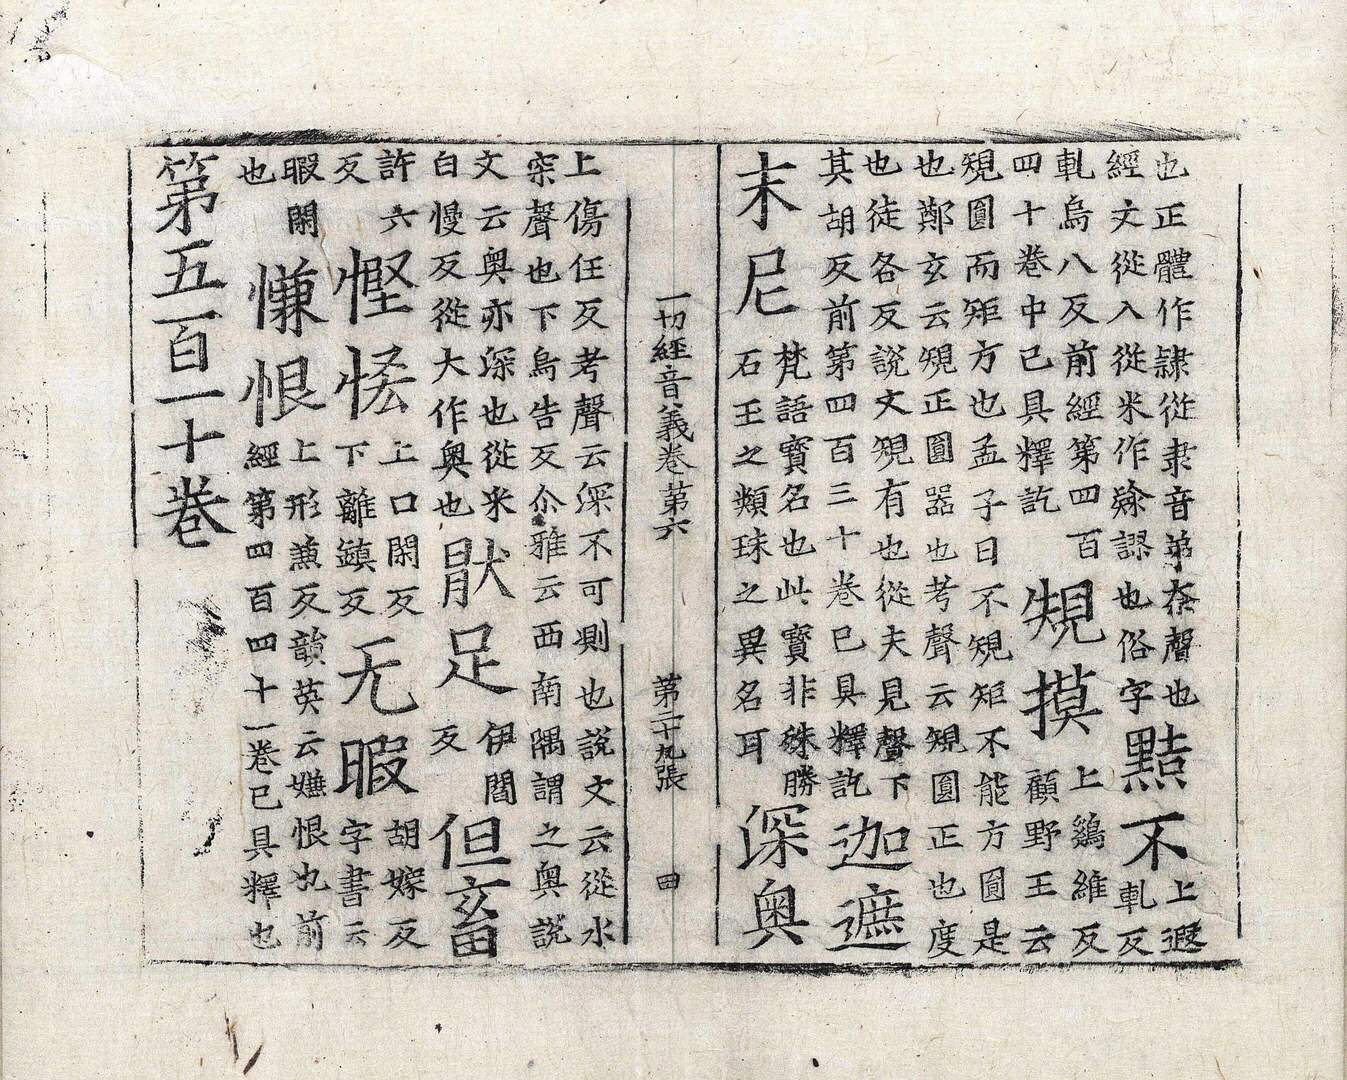 也正體作隷從隶音第柰聲也
經文從入從米作𨽻謬也俗字
黠不
上遐
軋反
軋烏八反前經第四百
四十卷中已具釋訖
䂓摸
上鷄維反
顧野王云
䂓圓而矩方也孟子曰不䂓矩不能方圓是
也鄭玄云䂓正圓器也考聲云䂓圓正也度
也徒各反說文䂓有也從夫見聲下
其胡反前第四百三十卷已具釋訖
迦遮
末尼
梵語寶名也此寶非殊勝
石王之類珠之異名耳
深奥
一切經音義卷第六 第二十九張 田
上傷任反考聲云深不可測也說文云從水
罙聲也下烏告反尒雅云西南隅謂之奥說
文云奥亦深也從釆
白慢反從大作奥也
猒足
伊閻
反
但畜
許六
反
慳悋
上口閑反
下離鎮反
无暇
胡嫁反
字書云
暇閑
也
慊恨
上形蒹反韻英云嫌恨也前
經第四百四十一卷已具釋也
第五百一十卷